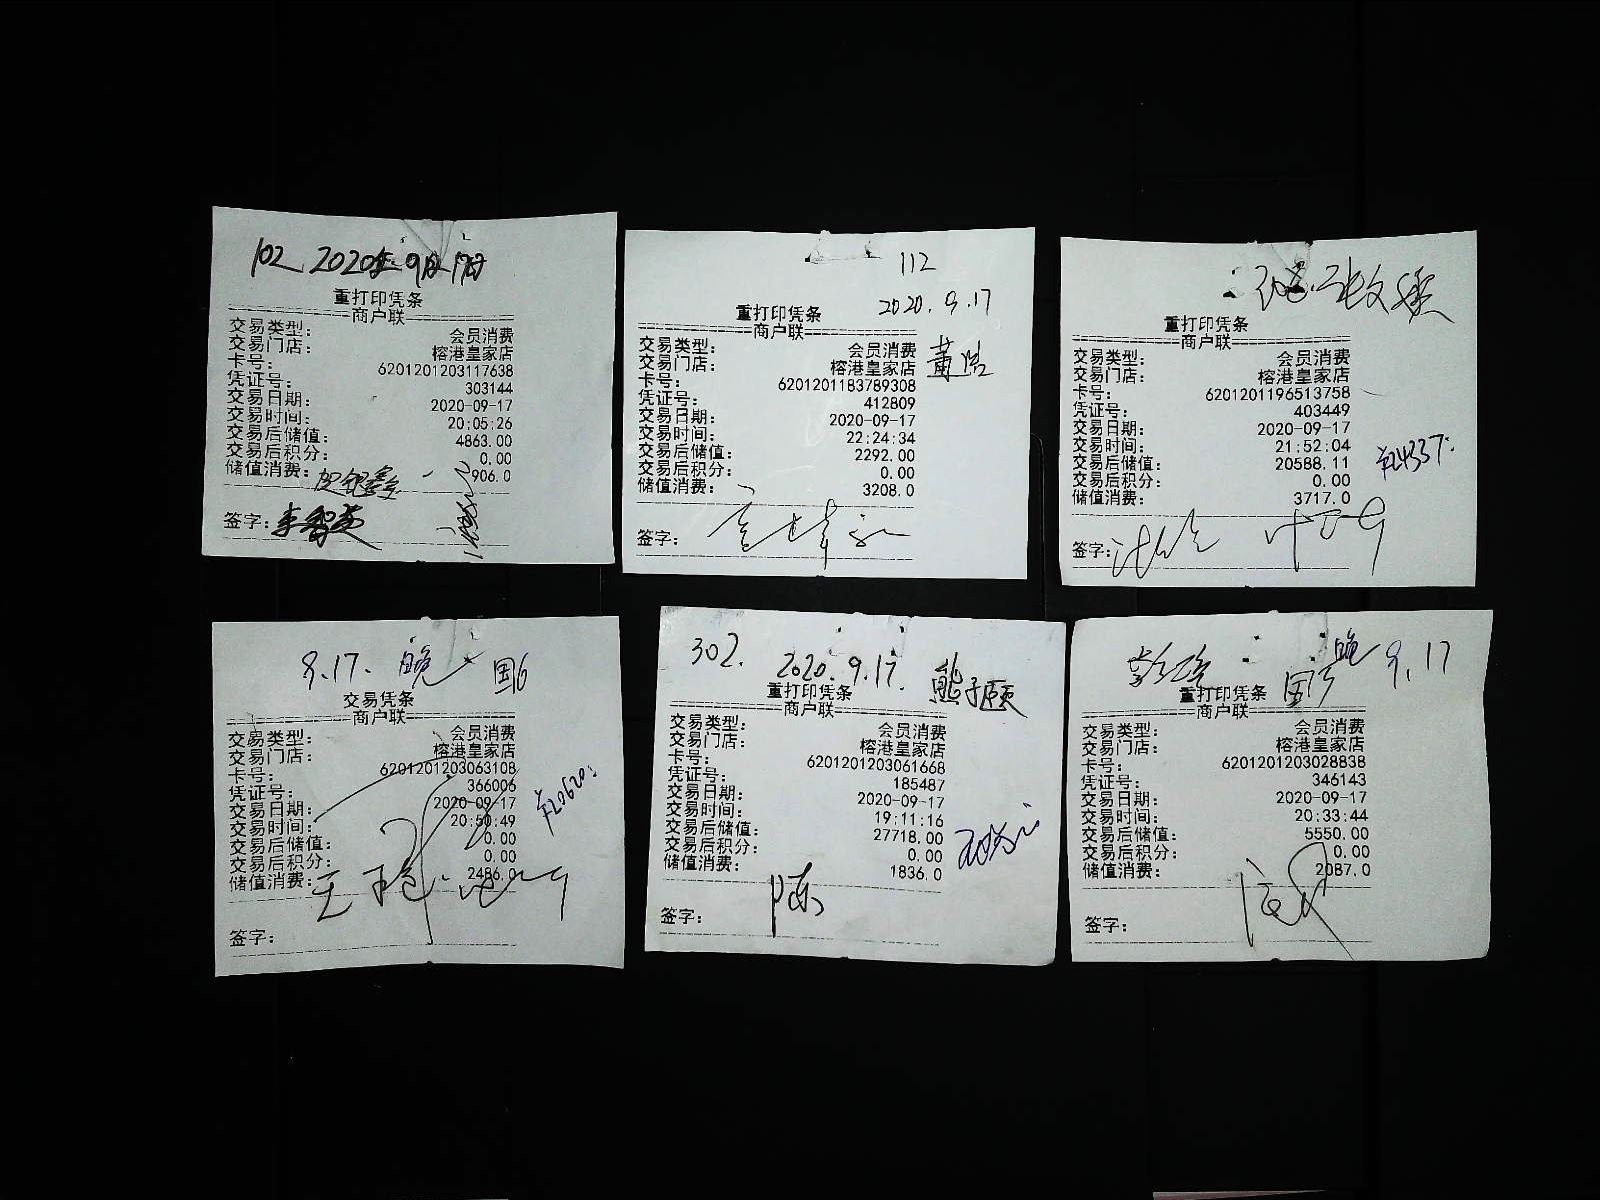 102 2020年9月17日
重打印凭条
商户联
交易类型: 会员消费
交易门店: 榕港皇家店
卡号: 6201201203117638
凭证号: 303144
交易日期: 2020-09-17
交易时间: 20:05:26
交易后储值: 4863.00
交易后积分: 0.00
储值消费: 906.0
签字:
112
2020.9.17
重打印凭条
商户联
交易类型: 会员消费
交易门店: 榕港皇家店
卡号: 6201201183789308
凭证号: 412809
交易日期: 2020-09-17
交易时间: 22:24:34
交易后储值: 2292.00
交易后积分: 0.00
储值消费: 3208.0
签字:
重打印凭条
商户联
交易类型: 会员消费
交易门店: 榕港皇家店
卡号: 6201201196513758
凭证号: 403449
交易日期: 2020-09-17
交易时间: 21:52:04
交易后储值: 20588.11
交易后积分: 0.00
储值消费: 3717.0
签字:
9.17. 晚 国6
交易凭条
商户联
交易类型: 会员消费
交易门店: 榕港皇家店
卡号: 6201201203063108
凭证号: 366006
交易日期: 2020-09-17
交易时间: 20:50:49
交易后储值: 0.00
交易后积分: 0.00
储值消费: 2486.0
签字:
302.
2020.9.17. 熊子颐
重打印凭条
商户联
交易类型: 会员消费
交易门店: 榕港皇家店
卡号: 6201201203061668
凭证号: 185487
交易日期: 2020-09-17
交易时间: 19:11:16
交易后储值: 27718.00
交易后积分: 0.00
储值消费: 1836.0
陈
签字:
晚 9.17
重打印凭条
商户联
交易类型: 会员消费
交易门店: 榕港皇家店
卡号: 6201201203028838
凭证号: 346143
交易日期: 2020-09-17
交易时间: 20:33:44
交易后储值: 5550.00
交易后积分: 0.00
储值消费: 2087.0
签字: